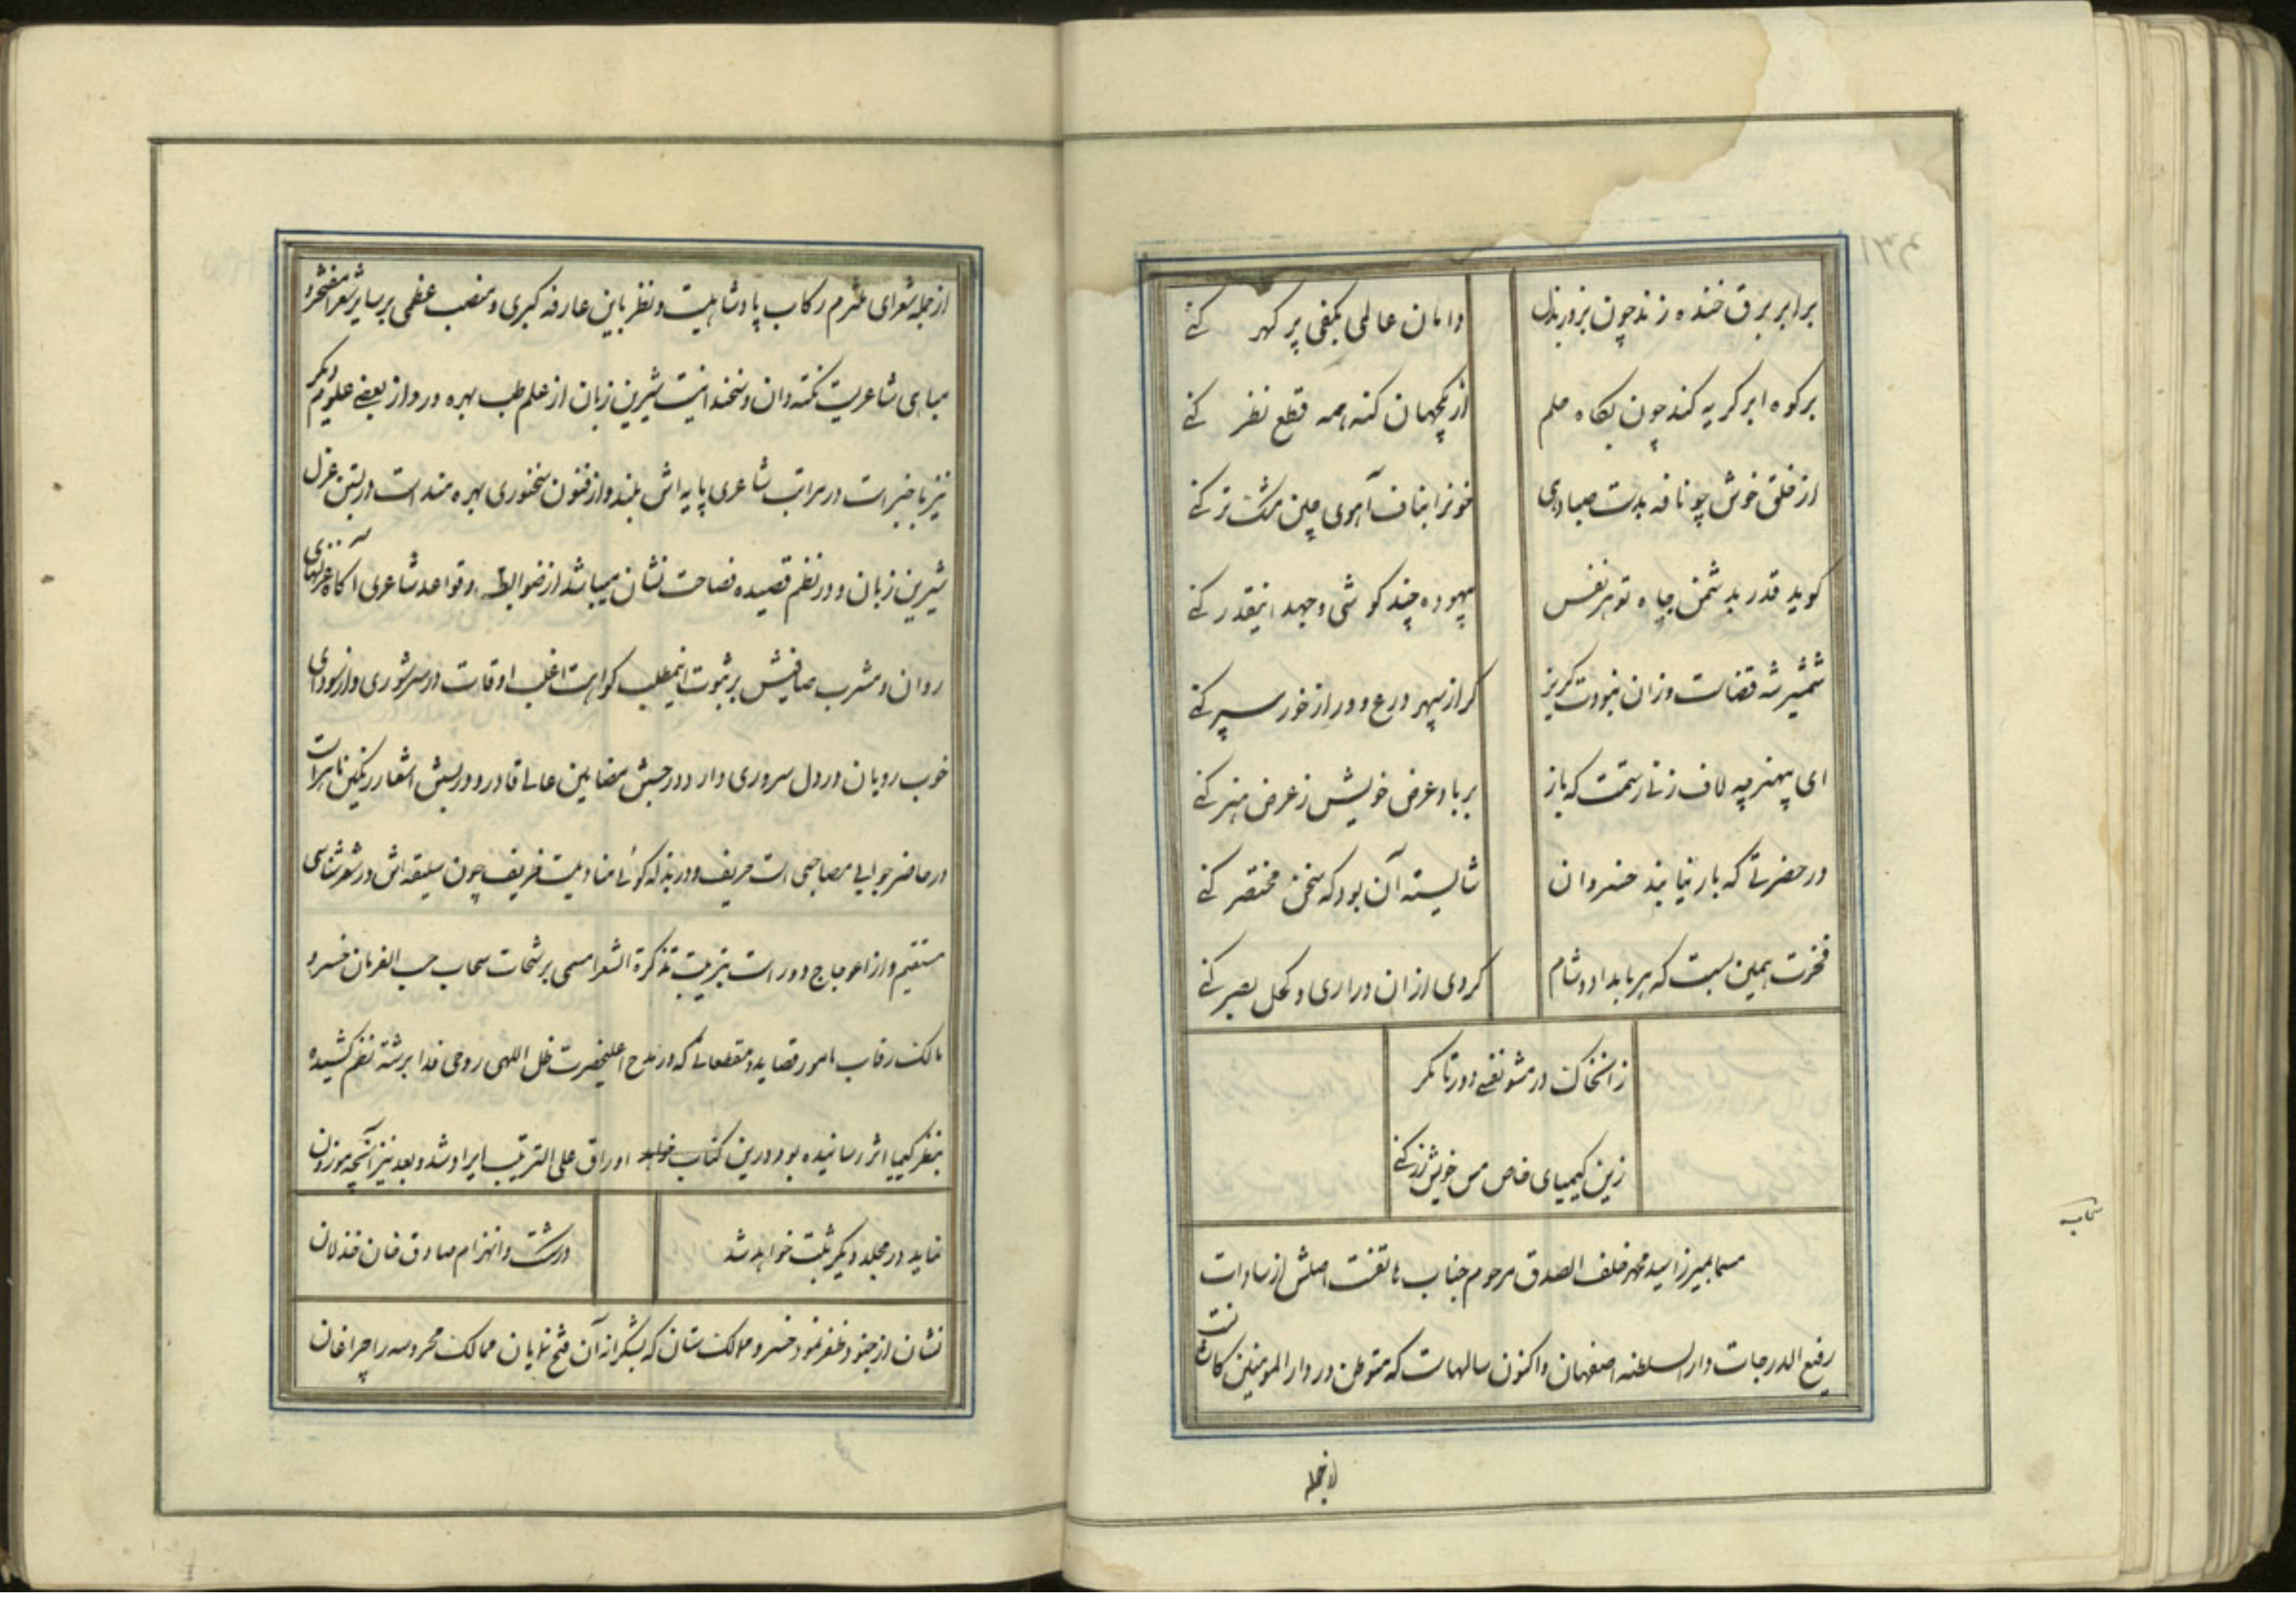 برابر برق خنده زند چون بروز بذل
دامان عالمی بکفی پر کهر کنی
بر کوه ابر کریه کند چون بکاه حلم
از یکجهان کنه همه قطع نظر کنی
از خلق خوش چو نافه بدست صبا دهی
خونرا بناف آهوی چین مشک تر کنی
کوید قدر بدشمن جاه تو هر نفس
بیهوده چند کوشی و جهد اینقدر کنی
شمشیر شه قضاست وزان نبودت کریز
کر از سپهر درع و ور از خور سپر کنی
ای بیهنر چه لاف زنی رستمت که باز
بر باد عرض خویش ز عرض هنر کنی
در حضرتی که بار نیابند خسروان
شایسته آن بود که سخن مختصر کنی
فخرت همین بست که هر بامداد و شام
کردی ازان در آری و کحل بصر کنی
زانخاک در مشو نفسی دور تا مکر
زین کیمیای خاص مس خویش زر کنی
مسما بمیرزا سید محمد خلف الصدق مرحوم جناب هاتفست اصلش از سادات
رفیع الدرجات دار السلطنه اصفهان و اکنون سالهاست که متوطن در دار المومنین کاشانست
سحاب
از جمله شعرای ملتزم رکاب پادشاهیست و نظر باین عارفه کبری و منصب عظمی بر سایر شعرا مفتخر و
مباهی شاعریست نکته دان و سخندانیست شیرین زبان از علم طب بهره ور و از بعضی علوم دیکر
نیز باخبر است در مراتب شاعری پایه اش بلند و از فنون سخنوری بهره مند است در بستن غزل
شیرین زبان و در نظم قصیده فصاحت نشان میباشد از ضوابط و قواعد شاعری آکاه غزلهای
روان و مشرب صافیش بر ثبوت اینمطلب کواهست اغلب اوقات در سر شوری و از سودای
خوب رویان در دل سروری دارد در جستن مضامین عالی قادر و در بستن اشعار رنکین ماهر است
در حاضر جوابی مصاحبی است حریف و در بذله کوئی منادمیست ظریف چون سلیقه اش در شعر شناسی
مستقیم و از اعوجاج دور است بترتیب تذکرة الشعرا مسمی برشحات سحاب حسب الفرمان خسرو
مالک رقاب مامور قصاید و مقطعاتی که در مدح اعلیحضرت ظل اللهی روحی فدا برشته نظم کشیده
بنظر کیمیا اثر رسانیده بود درین کتاب اوراق علی الترتیب ایراد شد و بعد نیز آنچه موزون
نماید در مجلد دیکر ثبت خواهد شد
در شکست و انهزام صادق خان خذلان
نشان از جنود ظفر نمود خسرو ملوک ستان که بشکرانه آن فتح نمایان ممالک محروسه را چراغان